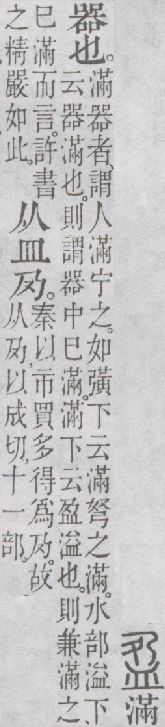 盈 滿
器也。
滿器者、謂人滿宁之。如彍下云滿弩之滿。水部溢下
云器滿也。則謂器中巳滿。滿下云盈溢也。則兼滿之
巳滿而言。許書
之精嚴如此。
从皿夃。
秦以市買多得為夃。故
从夃。以成切。十一部。